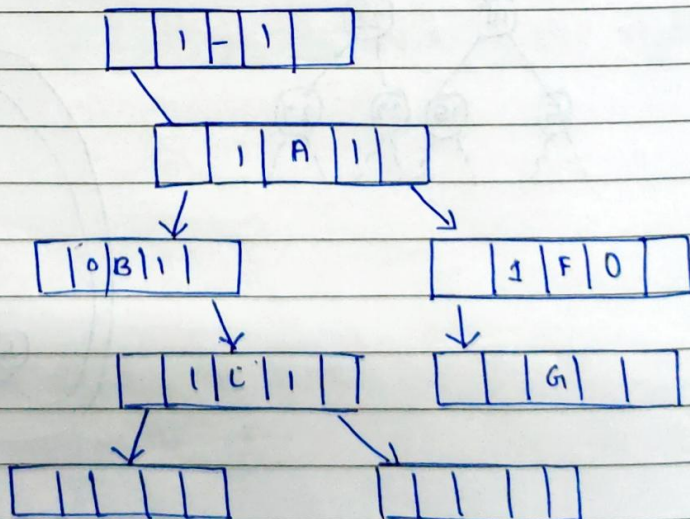 1 - 1
1 A 1
0 B 1 1 F 0
1 C 1 G